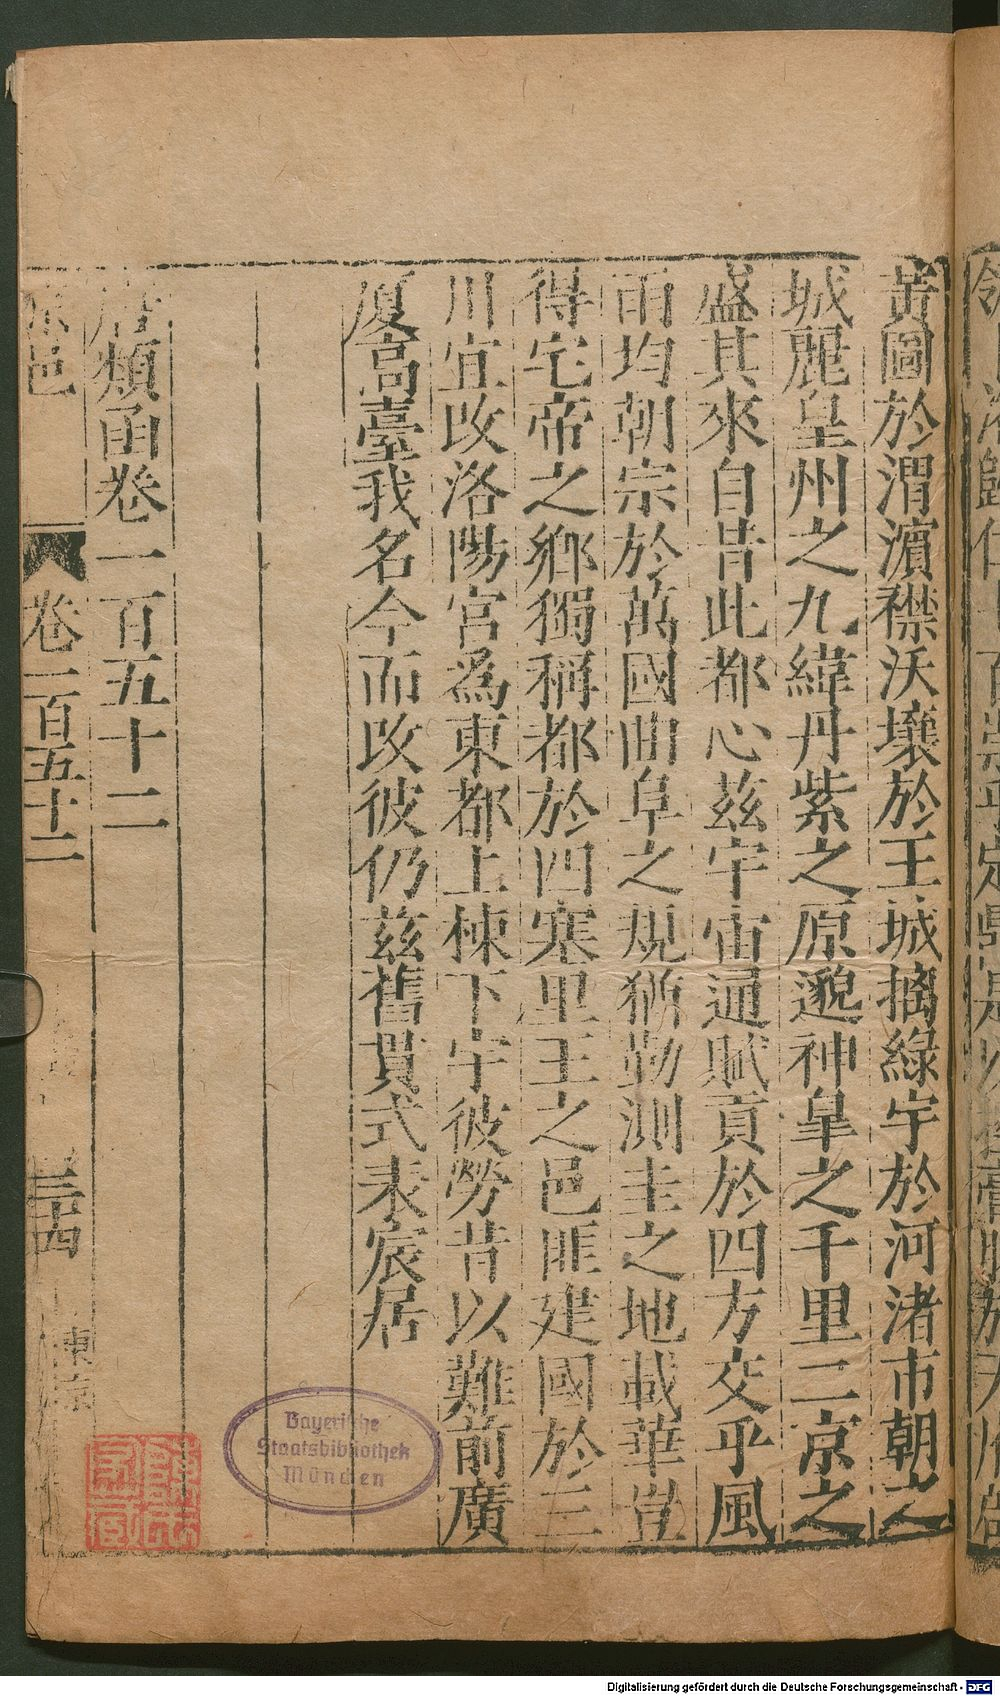 黃圖於渭濵襟沃壤於王城摛綠宇於河渚市朝之
城麗皇州之九緯丹紫之原邈神皐之千里二京之
盛其來自昔此都心茲宇宙通賦貢於四方交乎風
雨均朝宗於萬國曲阜之規猶勤測圭之地載華豈
得宅帝之鄉獨稱都於四塞里王之邑匪建國於三
川宜改洛陽宮爲東都上棟下宇彼勞昔以難前廣
厦高臺我名今而改彼仍茲舊貫式表宸居
類函卷一百五十二
邑 卷一百五十二 三十四 東京
Bayerische
Staatsbibliothek
München
Digitalisierung gefördert durch die Deutsche Forschungsgemeinschaft - DFG